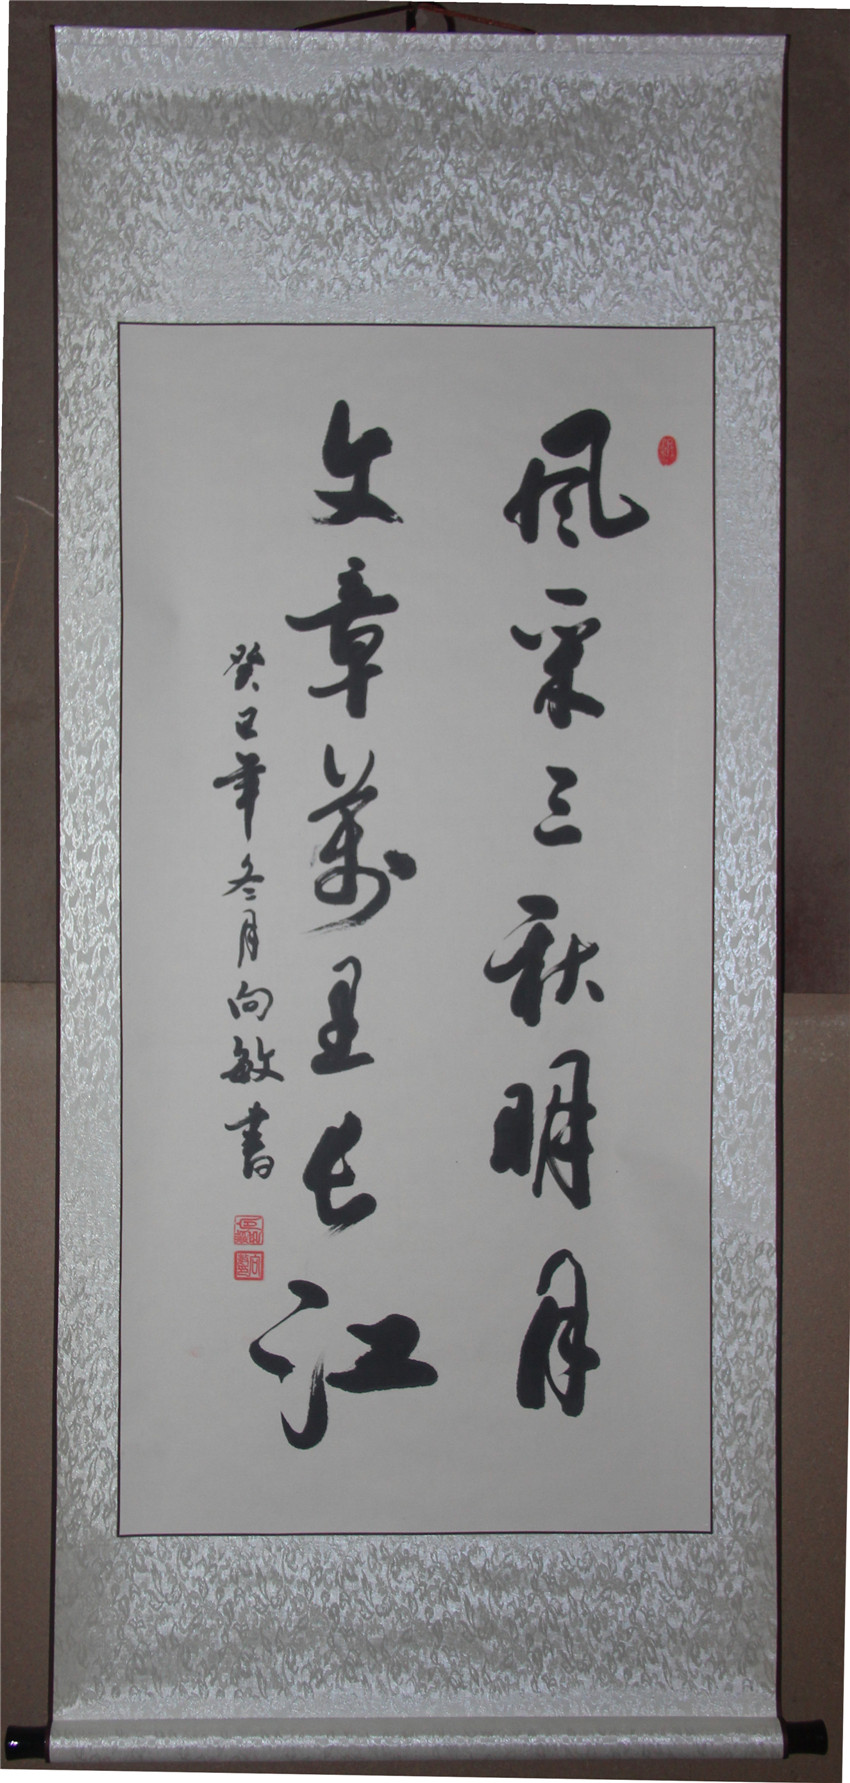 風采三秋明月
文章萬里长江
癸巳年冬月向敏書